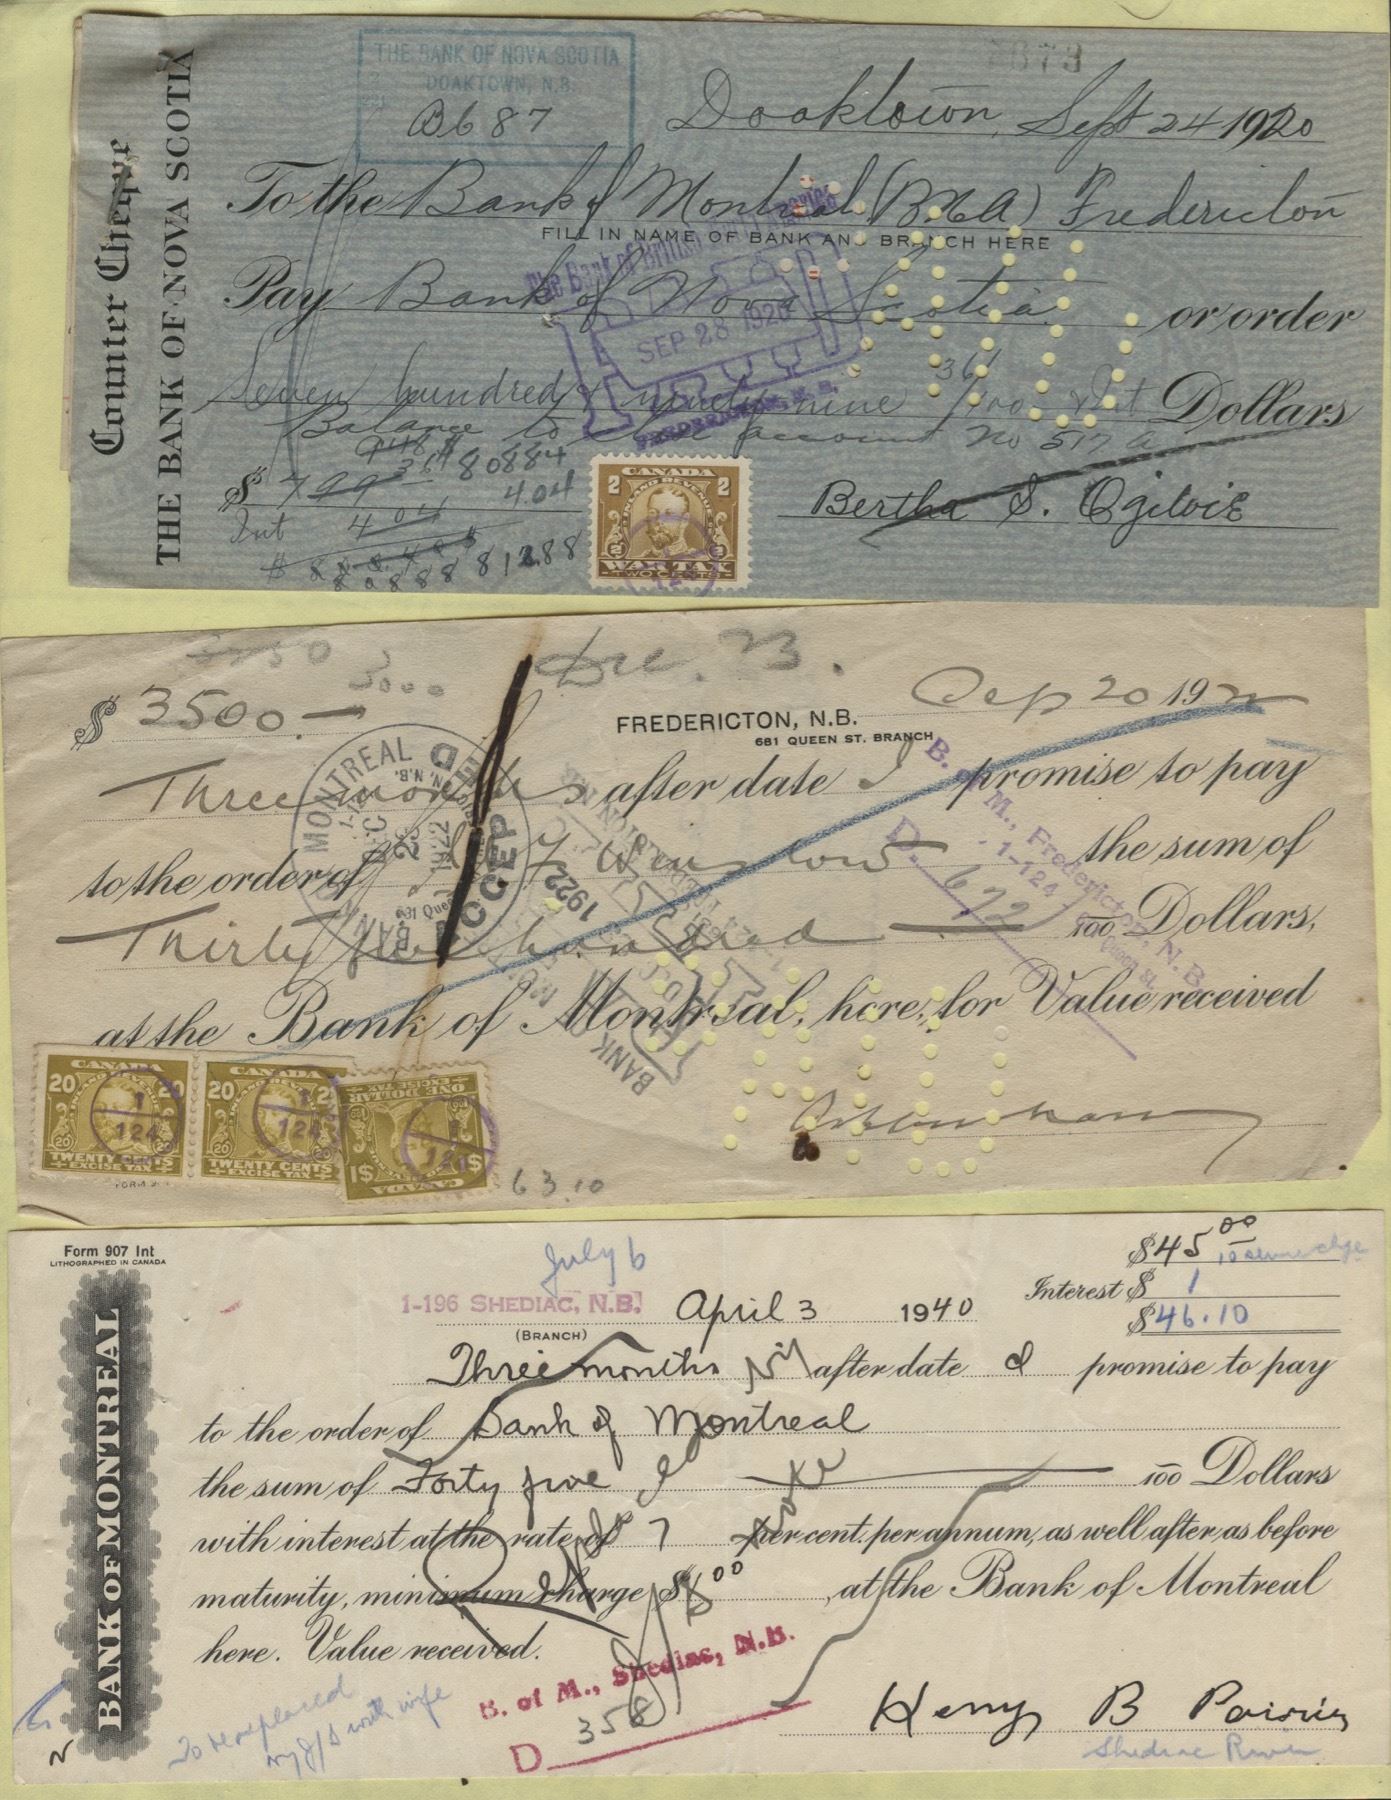 Counter Cheque
THE BANK OF NOVA SCOTIA
THE BANK OF NOVA SCOTIA
DOAKTOWN, N.B.
B687
Doaktown, Sept 24 1920
To the Bank of Montreal (B.N.A) Fredericton
FILL IN NAME OF BANK AND BRANCH HERE
Pay Bank of Nova Scotia or order
The Bank of British North America
SEP 28 1920
FREDERICTON, N.B.
Seven hundred & ninety nine 36/100 Int Dollars
Balance to the account No 517 A
$ 799 36 $808 84
4.04
Int 4 04
812.88
Bertha S. Ogilvie
CANADA
2 2
INLAND REVENUE
WAR TAX
TWO CENTS
3000
Dec. 23.
$3500.—
FREDERICTON, N.B.
681 QUEEN ST. BRANCH
Sep 20 1922
Three months after date I promise to pay
to the order of Winslow the sum of
Thirty five hundred 100 Dollars,
at the Bank of Montreal, here, for Value received
BANK OF MONTREAL
ACCEPTED
1922
B. of M., Fredericton, N.B.
1-124
Queen St.
D. 672
CANADA
20 20
TWENTY CENTS
EXCISE TAX
1
124
CANADA
20
TWENTY CENTS
EXCISE TAX
1
124
CANADA
ONE DOLLAR
EXCISE TAX
$1 $1
63.10
Form 907 Int
LITHOGRAPHED IN CANADA
BANK OF MONTREAL
July 6
1-196 SHEDIAC, N.B.
(BRANCH)
April 3 1940
$45 00
Interest $ 1
$46.10
Three months after date I promise to pay
to the order of Bank of Montreal
the sum of Forty five 100 Dollars
with interest at the rate of 7 per cent. per annum, as well after as before
maturity, minimum charge $ 00, at the Bank of Montreal
here. Value received.
B. of M., Shediac, N.B.
D 358
with wife
Henry B Poirier
Shediac River